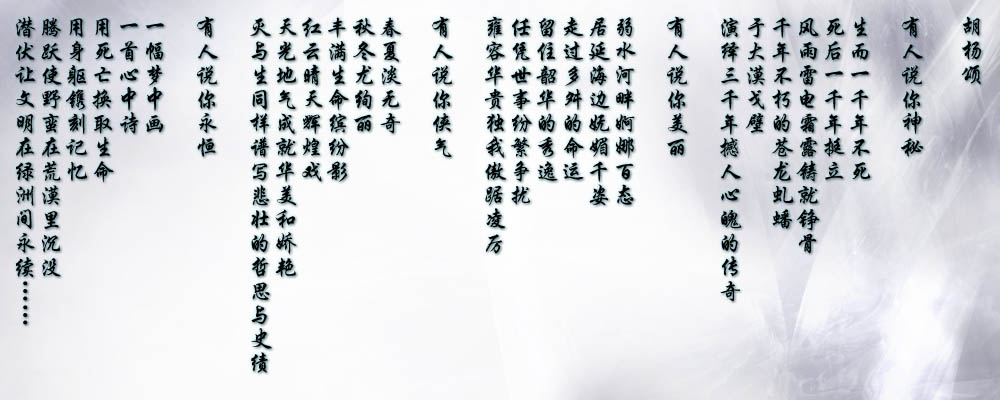 胡杨颂
有人说你神秘
生而一千年不死
死后一千年挺立
风雨雷电霜露铸就铮骨
千年不朽的苍龙虬蟠
于大漠戈壁
演绎三千年撼人心魄的传奇
有人说你美丽
弱水河畔婀娜百态
居延海边妩媚千姿
走过多舛的命运
留住韶华的秀逸
任凭世事纷繁争扰
雍容华贵独我傲踞凌厉
有人说你侠气
春夏淡无奇
秋冬尤绚丽
丰满生命缤纷影
红云晴天辉煌戏
天光地气成就华美和娇艳
灭与生同样谱写悲壮的哲思与史绩
有人说你永恒
一幅梦中画
一首心中诗
用死亡换取生命
用身躯镌刻记忆
腾跃使野蛮在荒漠里沉没
潜伏让文明在绿洲间永续……